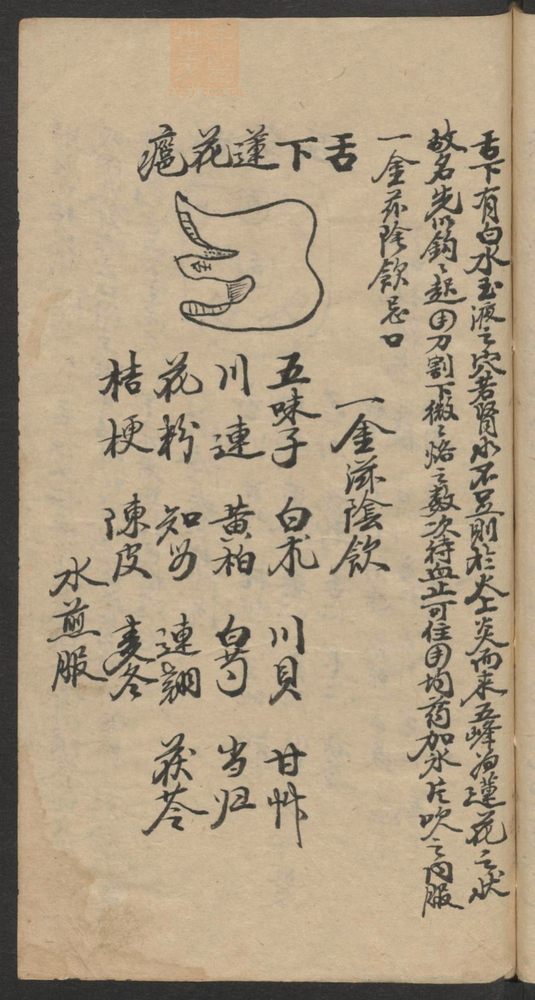 舌下有白水玉液之穴若腎水不足則於火上炎而来五峰为蓮花之状
故名先以鈎之起用刀割下微之烙之数次待血止可住用均药加氷片吹之内服
一金滋陰飲忌口
舌下蓮花瘡
一金滋陰飲
五味子 白朮 川貝 甘艸
川連 黄柏 白芍 当归
花粉 知母 連翹 茯苓
桔梗 陳皮 麦冬
水煎服